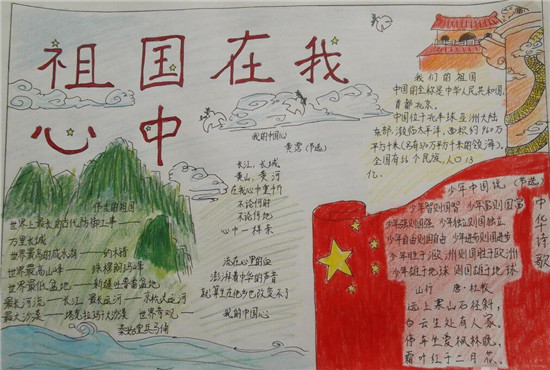 祖国在我
心中
伟大的祖国
世界上最长的古代防御工事——
万里长城
世界最高的咸水湖——纳木错
世界最高山峰——珠穆朗玛峰
世界最低盆地——新疆吐鲁番盆地
最长河流——长江 最长运河——京杭大运河
最大沙漠——塔克拉玛干大沙漠 世界奇观——
秦始皇兵马俑
我的中国心
黄霑(节选)
长江,长城
黄山,黄河
在我心中重千斤
不论何时
不论何地
心中一样亲
流在心里的血
澎湃着中华的声音
就算生在他乡也改变不了
我的中国心
我们的祖国
中国的全称是中华人民共和国,
首都北京。
中国位于北半球,亚洲大陆
东部,濒临太平洋,面积约960万
平方千米(另有300万平方千米的领海)。
全国有56个民族,人口13
亿。
少年中国说(节选)
少年智则国智 少年富则国富
少年强则国强 少年独立则国独立
少年自由则国自由 少年进步则国进步
少年胜于欧洲则国胜于欧洲
少年雄于地球则国雄于地球
山行 唐·杜牧
远上寒山石径斜,
白云生处有人家。
停车坐爱枫林晚,
霜叶红于二月花。
中华诗歌